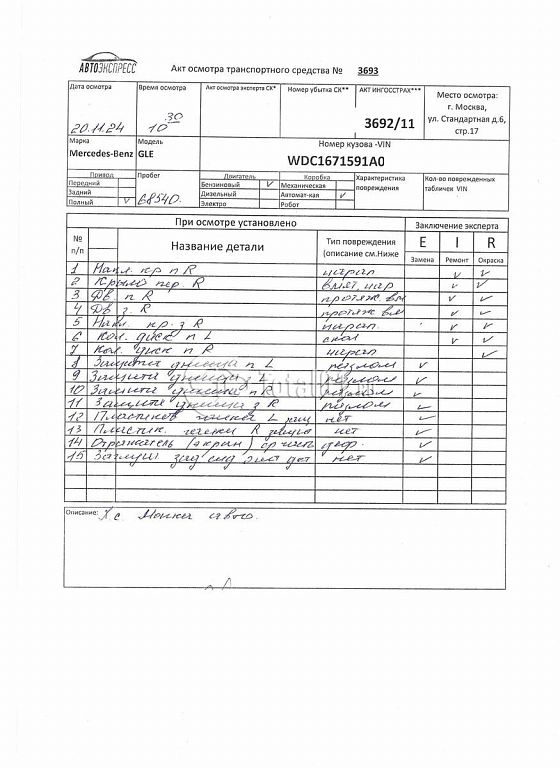 АВТОЭКСПРЕСС
Акт осмотра транспортного средства № 3693
Дата осмотра Время осмотра Акт осмотра эксперта СК* Номер убытка СК** АКТ ИНГОССТРАХ*** Место осмотра:
г. Москва,
ул. Стандартная д.6,
стр.17
20.11.24 10 30 3692/11
Марка Модель Номер кузова -VIN
Mercedes-Benz GLE WDC1671591A0
Привод Пробег Двигатель Коробка Характеристика повреждения Кол-во поврежденных табличек VIN
Передний Бензиновый V Механическая
Задний 68540 Дизельный Автомат-кая V
Полный V Электро Робот
При осмотре установлено Заключение эксперта
№ п/п Название детали Тип повреждения (описание см.Ниже E I R
Замена Ремонт Окраска
1 Накл. кр п R царап v v
2 Крыло пер. R вмят, цар v v
3 Дв. п R v v
4 Дв з. R v v
5 Накл. кр. з R царап. v v
6 Кол. диск п L скол v v
7 Кол. диск п R царап v
8 Защита днища п L разлом v
9 Защита днища з L разлом v
10 Защита днища п R разлом v
11 Защита днища з R разлом v
12 L нет v
13 Пластик. R нет v
14 Отражатель (экран) v
15 зад нет v
Описание: